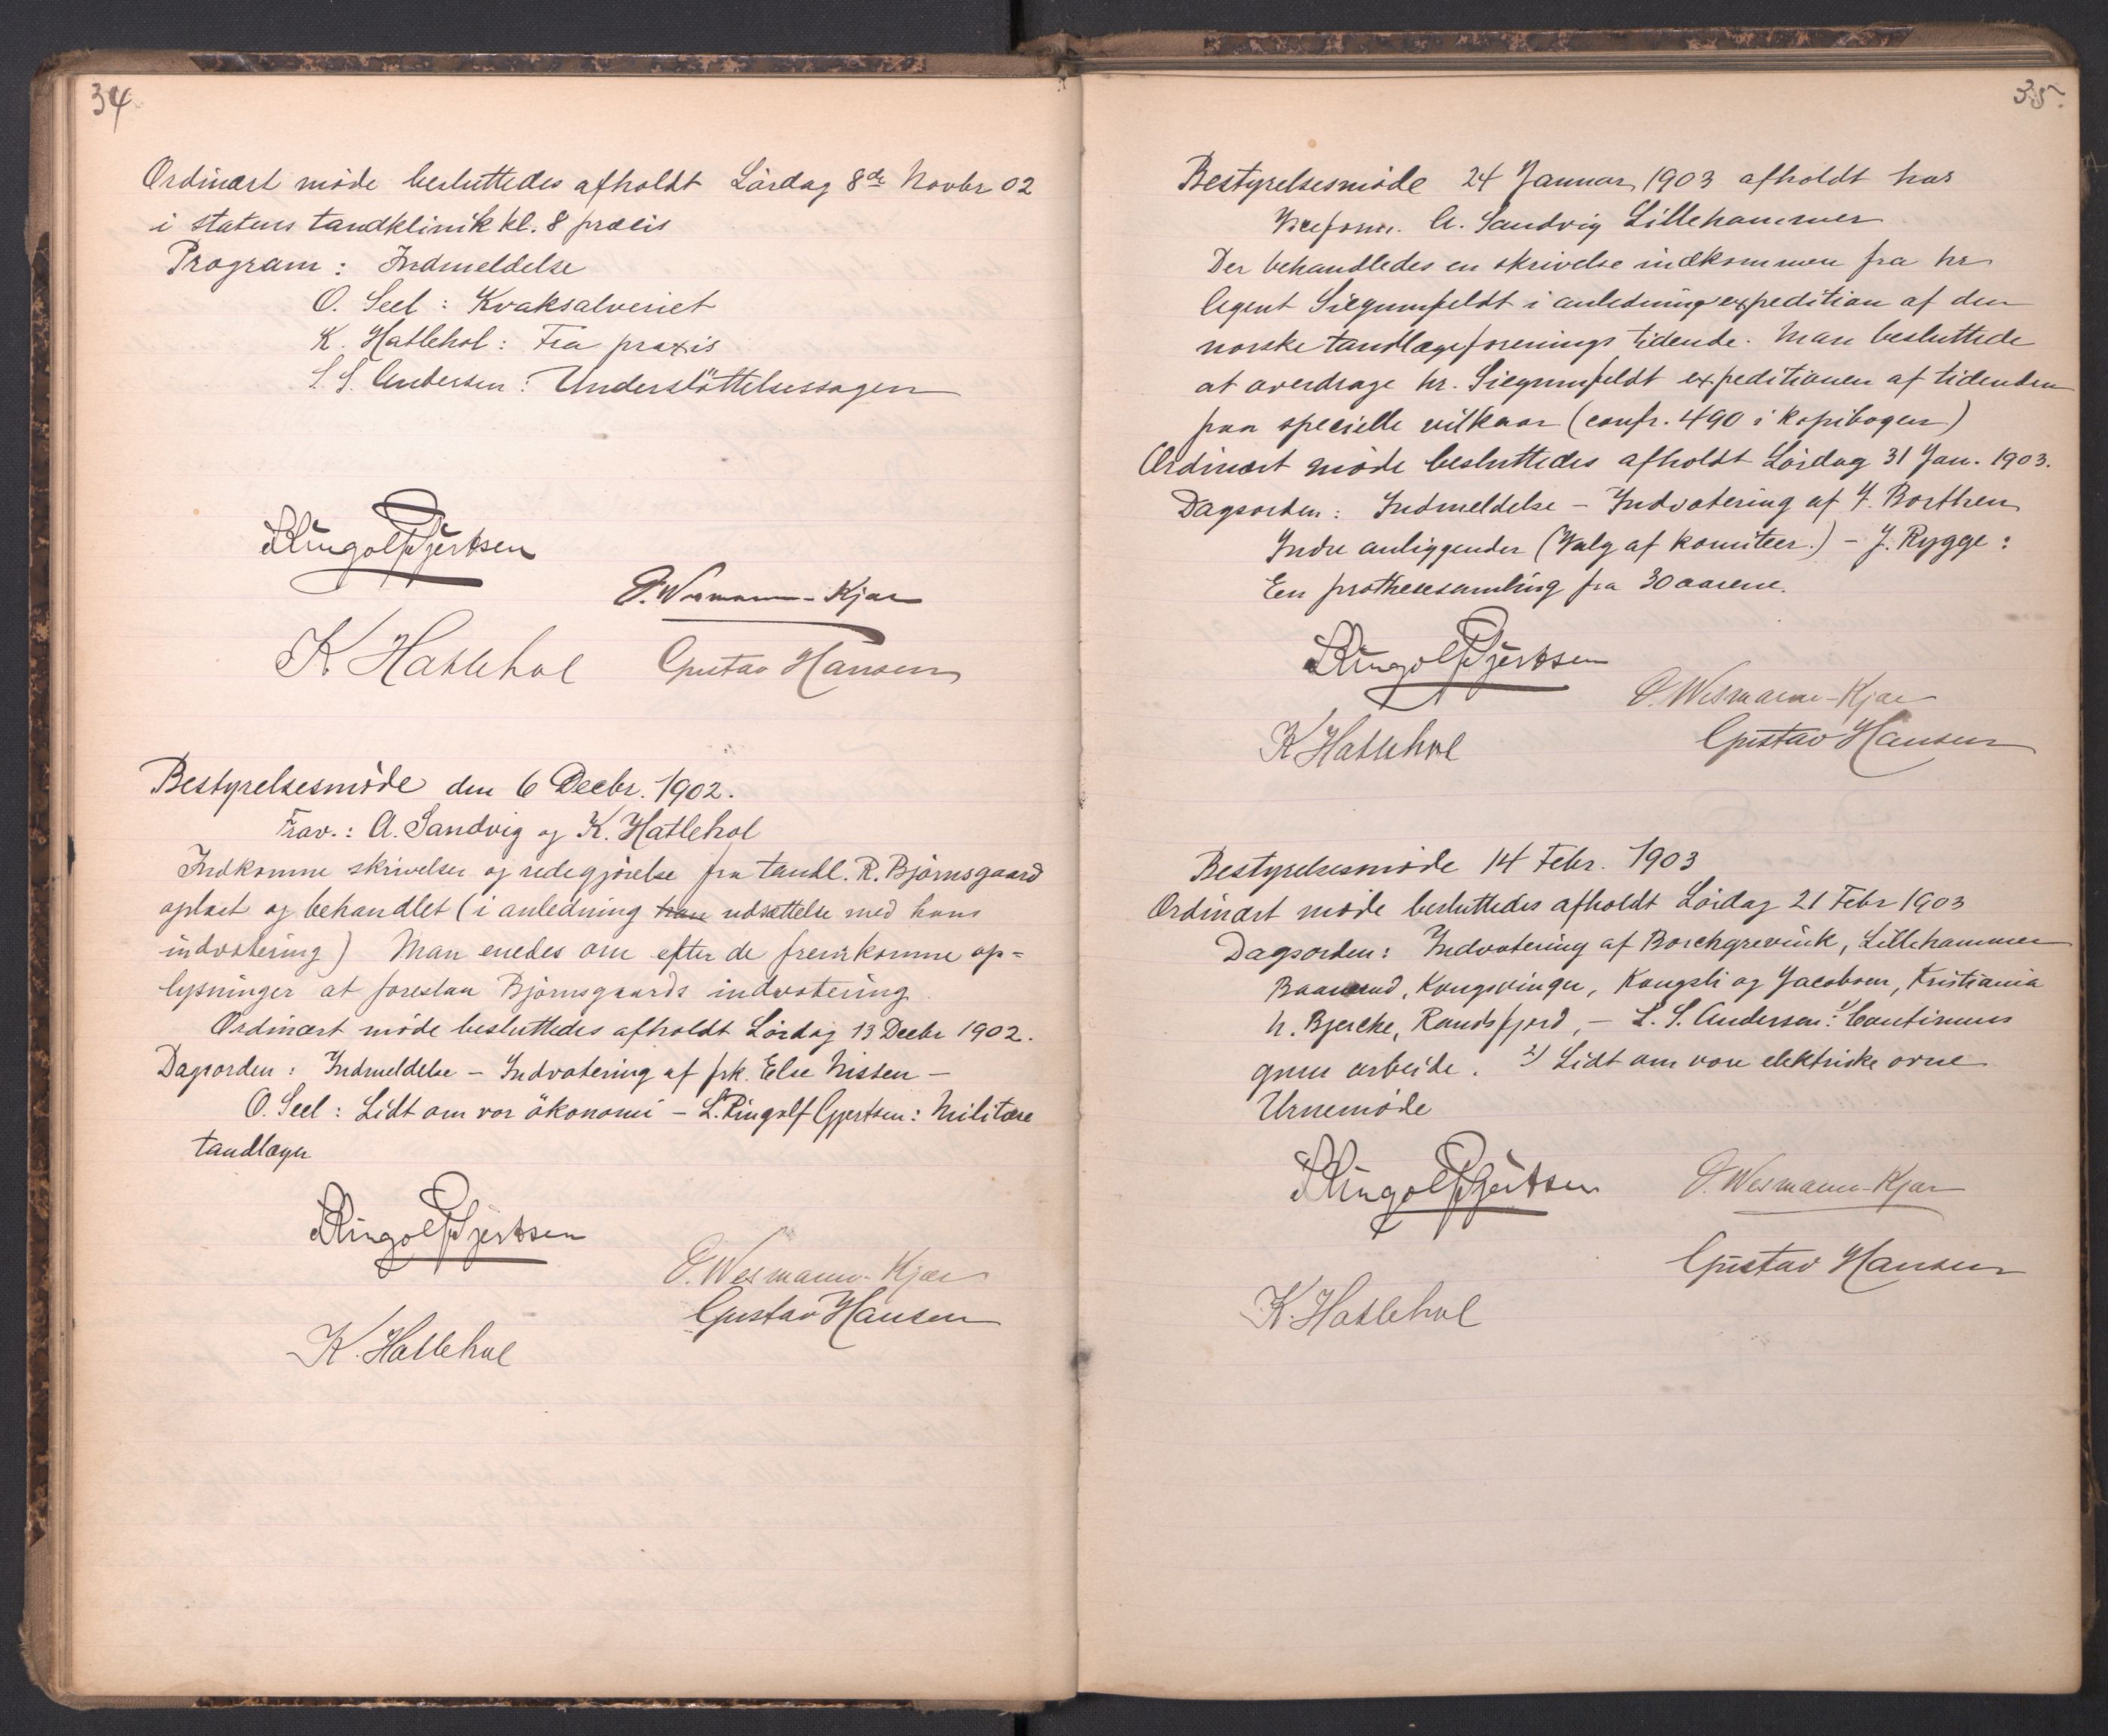 34
Ordinært møde besluttedes afholdt Lördag 8de Novbr 02
i statens tandklinik kl. 8 præcis
Program: Indmeldelse
O. Seel: Kvaksalveriet
K. Hatlehol: Fra praxis
L S. Andersen: Understöttelsessagen
L Ringolf Gjertsen
O. Wesmann-Kjær
K Hatlehol Gustav Hansen
Bestyrelsesmøde den 6 Decbr. 1902.
Frav.: A. Sandvig og K. Hatlehol
Indkomne skrivelser og redegjørelse fra tandl. R. Bjørnsgaard
oplæst og behandlet (i anledning hans udsættelse med hans
indvotering) Man enedes om efter de fremkomne op=
lysninger at foreslaa Bjørnsgaards indvotering.
Ordinært møde besluttedes afholdt Lördag 13 Decbr 1902.
Dagsorden: Indmeldelse – Indvotering af frk. Else Nissen –
O. Seel: Lidt om vor ökonomi – L. Ringolf Gjertsen: Militære
tandlæger
L Ringolf Gjertsen
O. Wesmann-Kjær
Gustav Hansen
K. Hatlehol
35.
Bestyrelsesmøde 24 Januar 1903 afholdt hos
Viceform. A. Sandvig Lillehammer
Der behandledes en skrivelse indkommen fra hr
Agent Siegumfeldt i anledning expedition af den
norske tandlægeforenings tidende. Man besluttede
at overdrage hr. Siegumfeldt expeditionen af tidenden
paa specielle vilkaar (confr. 490 i kopibogen)
Ordinært møde besluttedes afholdt Lördag 31 Jan. 1903.
Dagsorden: Indmeldelse – Indvotering af J. Borthen
Indre anliggender (Valg af komiteer.) – J. Rygge:
En prothesesamling fra 30 aarene.
L Ringolf Gjertsen
O. Wesmann-Kjær
K Hatlehol Gustav Hansen
Bestyrelsesmøde 14 Febr. 1903
Ordinært møde besluttedes afholdt Lördag 21 Febr 1903
Dagsorden: Indvotering af Borchgrevink, Lillehammer
Kongsvinger, Kongsli og Jacobsen, Kristiania
h. Bjercke, Randsfjord, – L. S. Andersen: 1) Continuus
gum arbeide. 2) Lidt om vore elektriske ovne
Urnemøde
L Ringolf Gjertsen O. Wesmann-Kjær
Gustav Hansen
K. Hatlehol